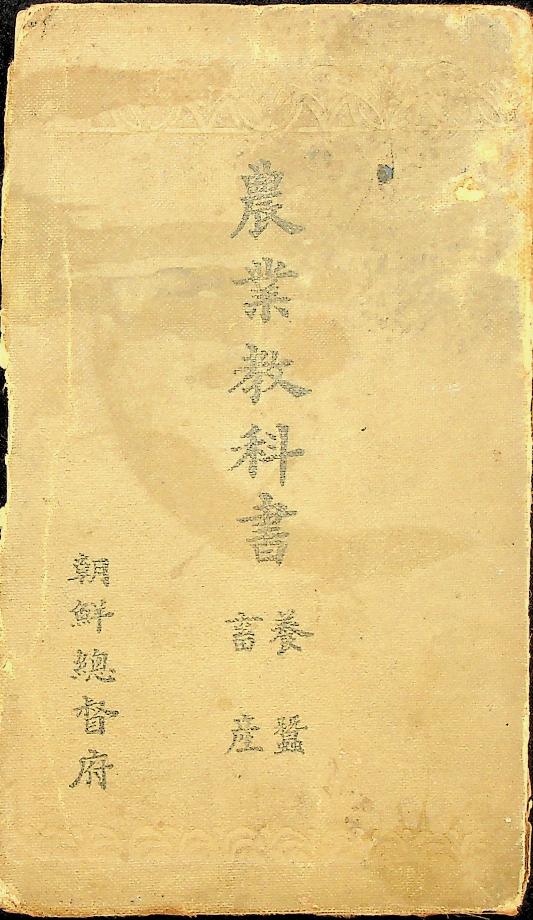 農業教科書
養蠶
畜産
朝鮮總督府